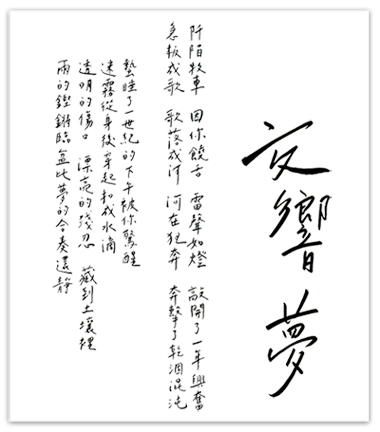 交響夢
阡陌牧車　因你饒舌　雷聲如燈　敲開了一年興奮
急板成歌　歌落成河　河在狂奔　奔擊了乾涸混沌
蟄睡了一世紀的下午被你驚醒
迷霧從身後穿起扣成水滴
透明的傷口　漂亮的殘忍　藏到土壤裡
雨的鏗鏘臨盆比夢的合奏還靜